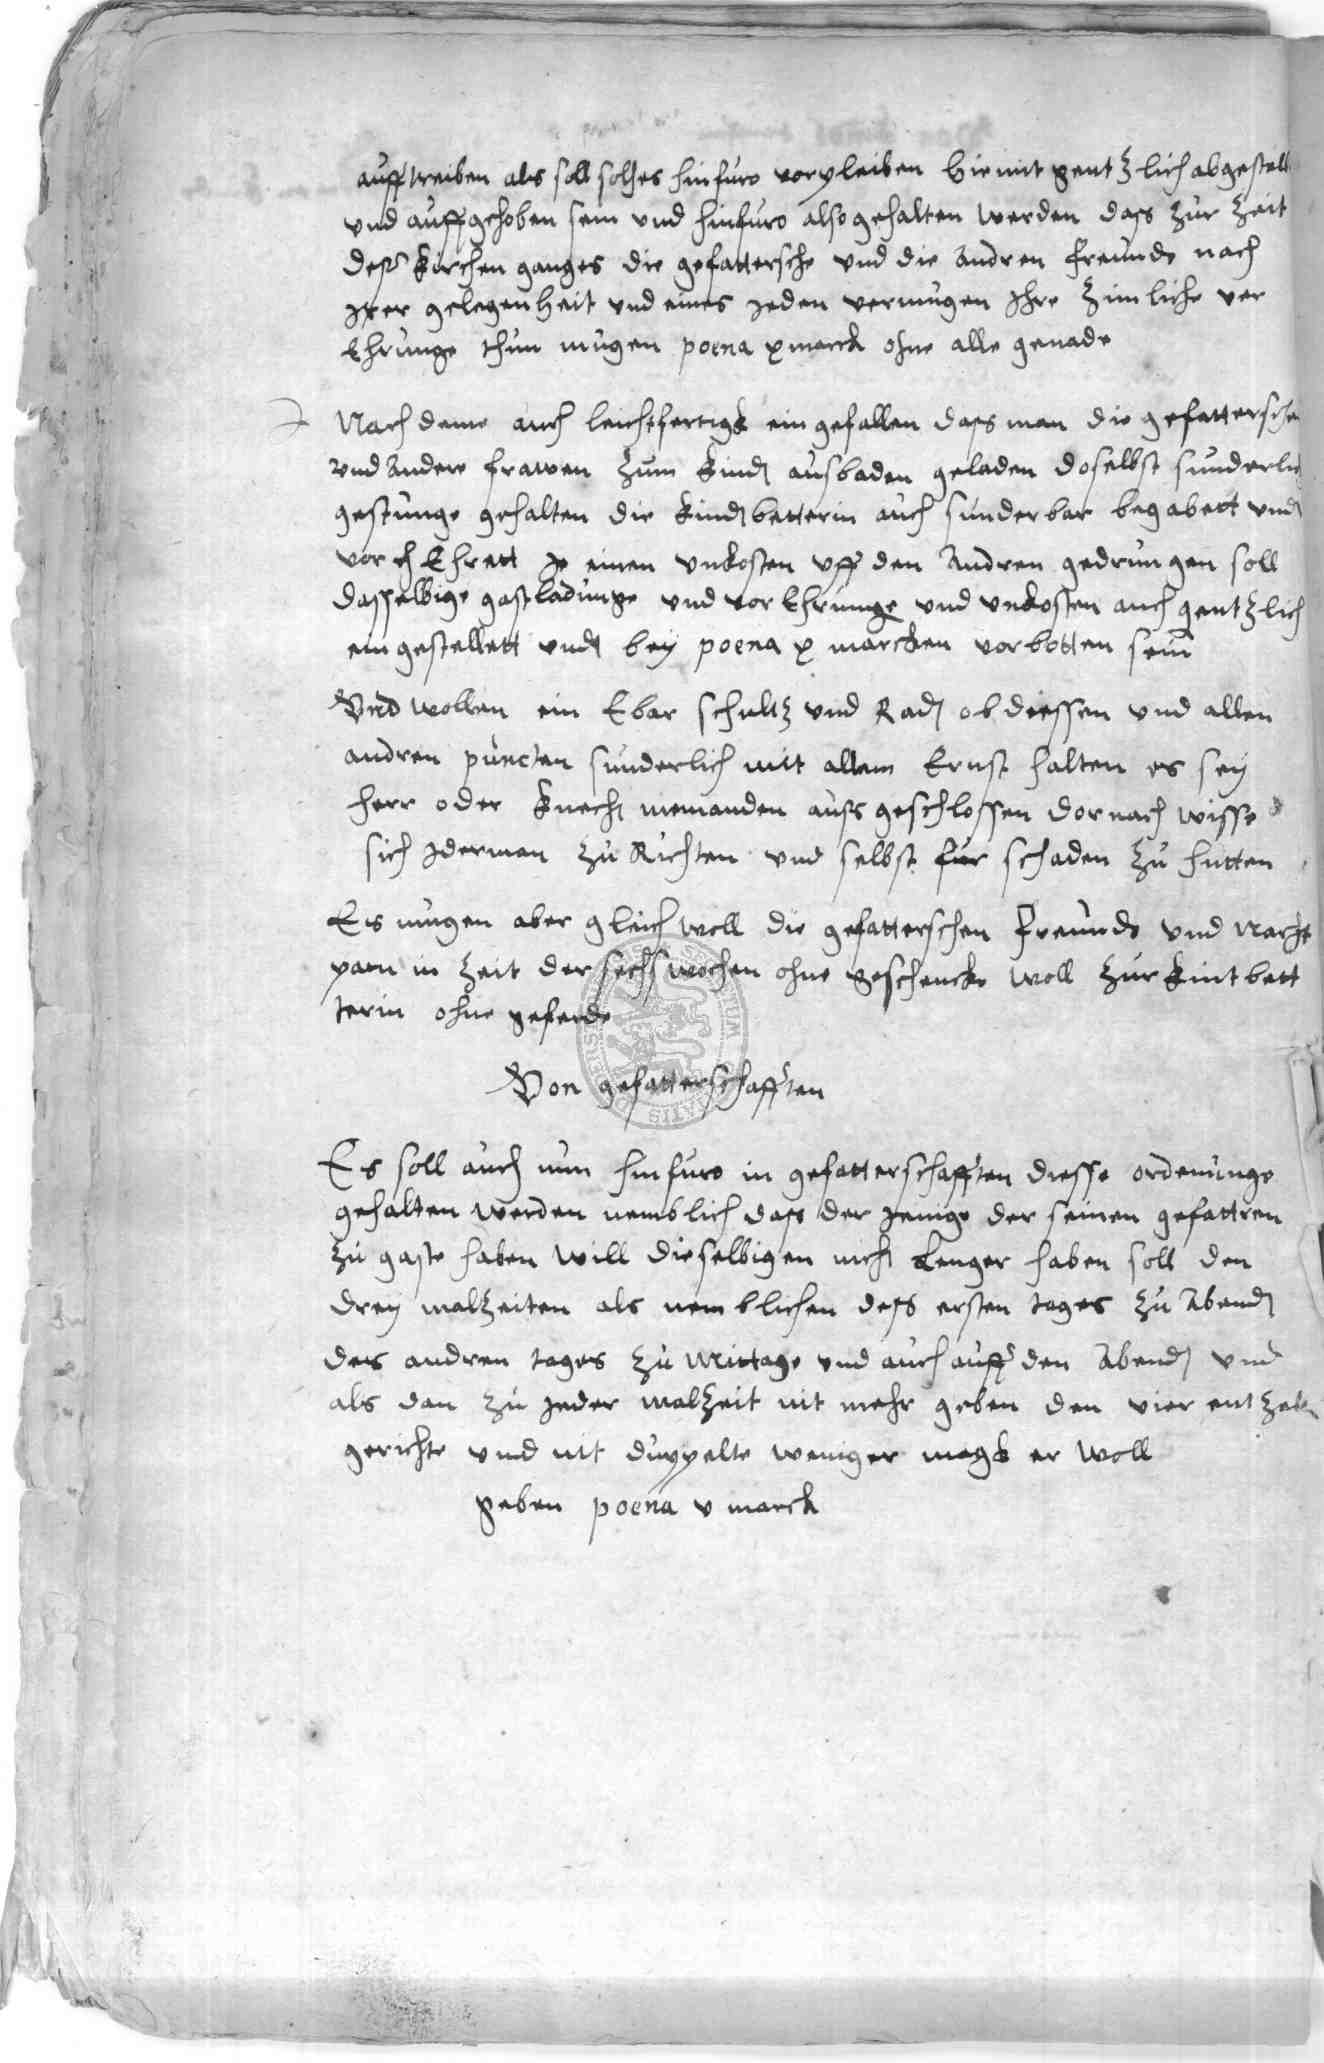 aufftreiben als soll solches hinfuro vorpleiben hiemit gentzlich abgestelt
vnd auffgehoben sein vnd hinfuro also gehalten werden dass zur Zeit
dess kirchen ganges die gefattersche vnd die andren freunde nach
jrer gelegenheit vnd eines jeden vermugen Jhre Zimliche ver
Ehrunge thun mugen poena x marck ohne alle genade
Nach deme auch leichtfertigk ein gefallen dass man die gefatterschen
vnd andere frawen zum kindt ausbaden geladen doselbst sunderlich
gestunge gehalten die kindtbetterin auch sunderbar begabett vndt
vor Ehrett Je einen vnkosten vff den Andren gedrungen soll
dasselbige gastladunge vnd vor Ehrunge vnd vnkosten auch gentzlich
ein gestellett vndt bey poena x marcken vorbotten sein
Vnd wollen ein Ebar schultz vnd Radt ob diessen vnd allen
andren puncten sunderlich mit allem Ernst halten es sey
herr oder knecht niemanden auss geschlossen dornach wisse
sich Jderman zu Richten vnd selbst fur schaden zu hutten
Es mugen aber gleich woll die gefatterschen freunde vnd Nacht
parn in Zeit der sechs wochen ohne geschencke woll zur kint bett
terin ohne geferde
Von gefatterschafften
Es soll auch nun hinfuro in gefatterschafften diesse ordenunge
gehalten werden nemblich dass der Jenige der seinen gefattren
zu gaste haben will dieselbigen nicht Lenger haben soll den
drey malzeiten als nemblichen dess ersten tages zu Abendt
des andren tages zu Mittage vnd auch auff den Abendt vnd
als dan zu jeder malzeit nit mehr geben den vier entzele
gerichte vnd nit duppelte weniger magk er woll
geben poena v marck